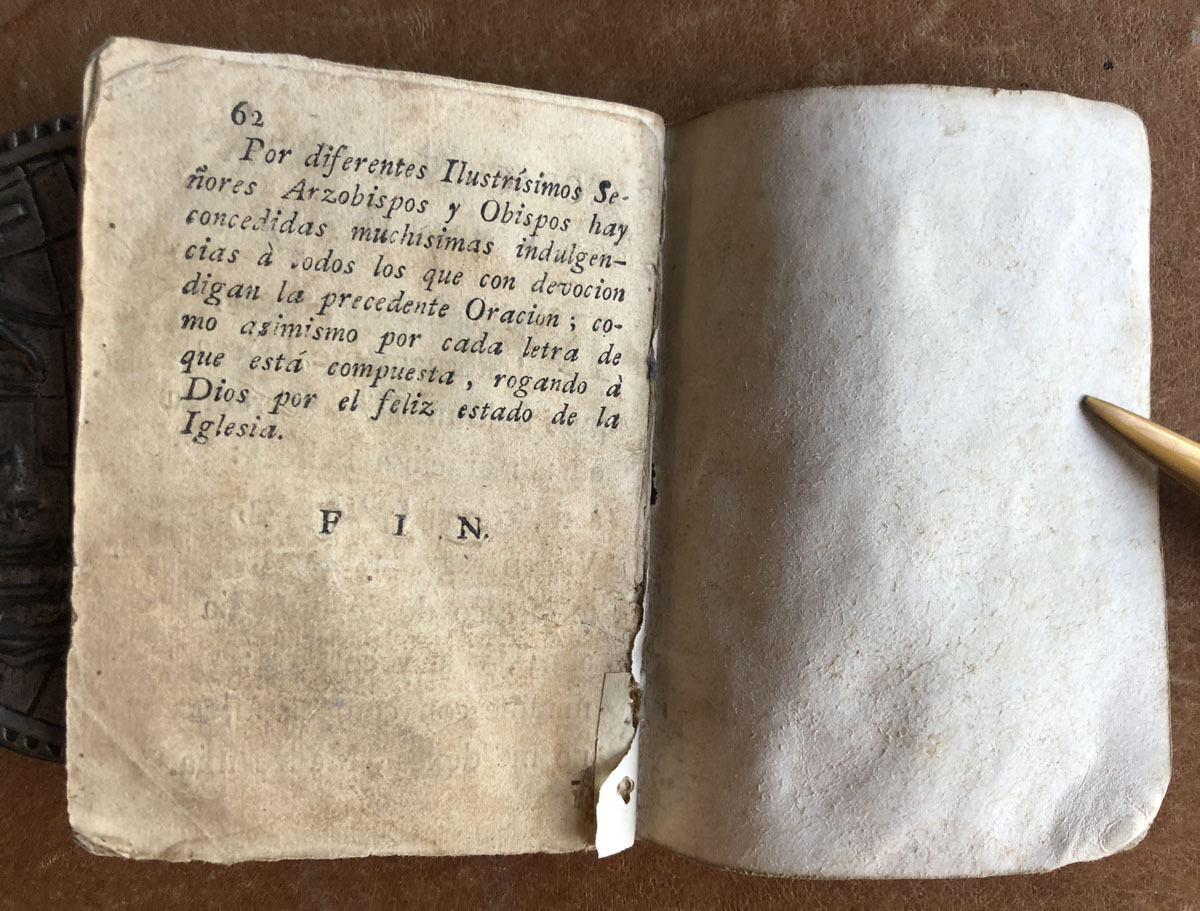 62
Por diferentes Ilustrísimos Se-
ñores Arzobispos y Obispos hay
concedidas muchísimas indulgen-
cias à todos los que con devocion
digan la precedente Oracion ; co-
mo asimismo por cada letra de
que está compuesta , rogando à
Dios por el feliz estado de la
Iglesia.
F I N.